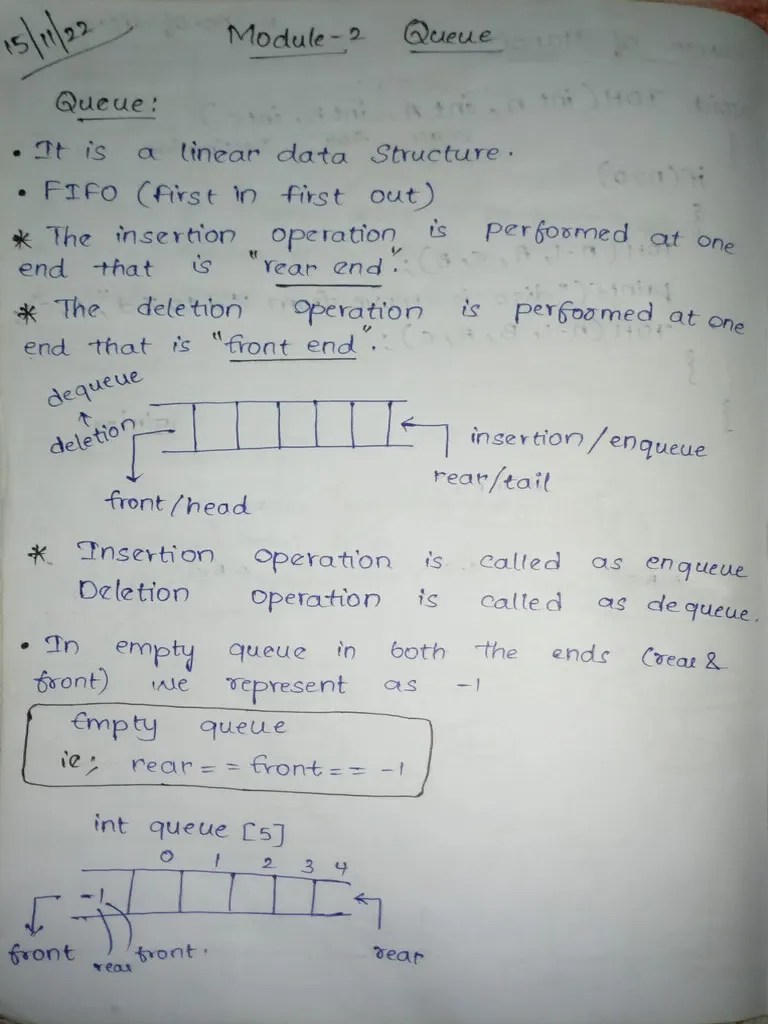 15/11/22
Module-2 Queue
Queue:
• It is a linear data Structure.
• FIFO (first in first out)
* The insertion operation is performed at one
end that is "rear end".
* The deletion operation is performed at one
end that is "front end".
dequeue
↑
deletion
insertion/enqueue
rear/tail
front/head
* Insertion operation is called as enqueue
Deletion operation is called as dequeue.
• In empty queue in both the ends (rear &
front) we represent as -1
Empty queue
ie; rear == front == -1
int queue [5]
0 1 2 3 4
-1
front rear front. rear